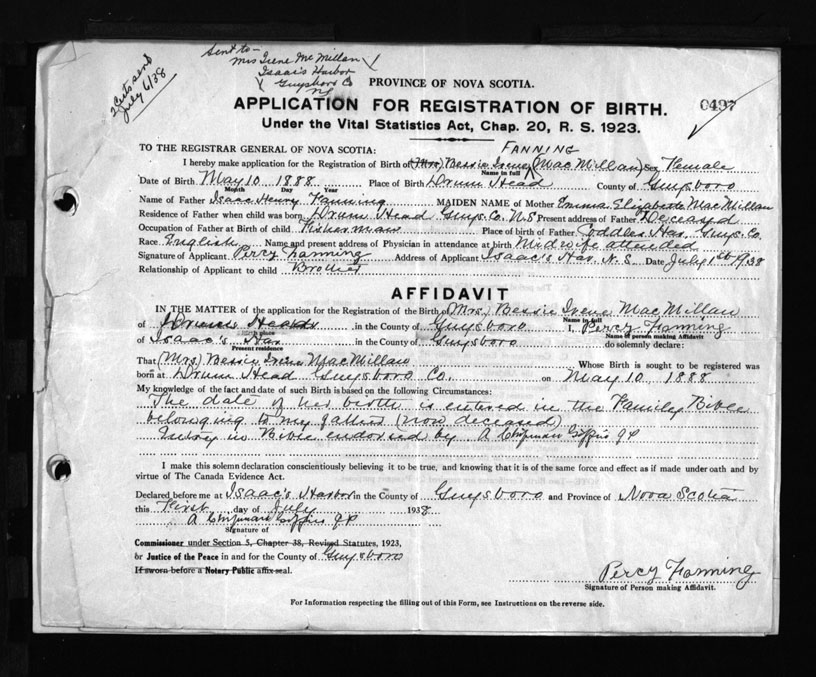 Sent to -
Mrs Irene McMillan
Isaac's Harbor
Guysboro Co
NS
2 Certs sent
July 6/38
PROVINCE OF NOVA SCOTIA.
APPLICATION FOR REGISTRATION OF BIRTH.
0497
Under the Vital Statistics Act, Chap. 20, R. S. 1923.
TO THE REGISTRAR GENERAL OF NOVA SCOTIA:
FANNING
I hereby make application for the Registration of Birth of (Mrs) Bessie Irene (MacMillan) Sex Female
Name in full
Date of Birth May 10 1888 Place of Birth Drum Head County of Guysboro
Month Day Year
Name of Father Isaac Henry Fanning MAIDEN NAME of Mother Emma Elizabeth MacMillan
Residence of Father when child was born Drum Head Guys. Co. N.S Present address of Father Deceased
Occupation of Father at Birth of child Fisherman Place of birth of Father Coddles Har. Guys. Co.
Race English Name and present address of Physician in attendance at birth Midwife attended
Signature of Applicant Percy Fanning Address of Applicant Isaac's Har. N.S. Date July 1st 1938
Relationship of Applicant to child Brother
AFFIDAVIT
IN THE MATTER of the application for the Registration of the Birth of (Mrs) Bessie Irene MacMillan
Name in full
of Drum Head in the County of Guysboro I, Percy Fanning
Birth place Name of person making Affidavit
of Isaac's Har in the County of Guysboro do solemnly declare:
Present residence
That (Mrs) Bessie Irene MacMillan Whose Birth is sought to be registered was
born at Drum Head Guysboro Co. on May 10 1888
My knowledge of the fact and date of such Birth is based on the following Circumstances:
The date of her birth is entered in the Family Bible
belonging to my father (now deceased)
Entry in Bible endorsed by A Chipman Giffin J P
I make this solemn declaration conscientiously believing it to be true, and knowing that it is of the same force and effect as if made under oath and by
virtue of The Canada Evidence Act.
Declared before me at Isaac's Harbor in the County of Guysboro and Province of Nova Scotia
this First day of July 1938
A Chipman Giffin J P
Signature of
Commissioner under Section 5, Chapter 38, Revised Statutes, 1923,
or Justice of the Peace in and for the County of Guysboro
If sworn before a Notary Public affix seal.
Percy Fanning
Signature of Person making Affidavit.
For Information respecting the filling out of this Form, see Instructions on the reverse side.